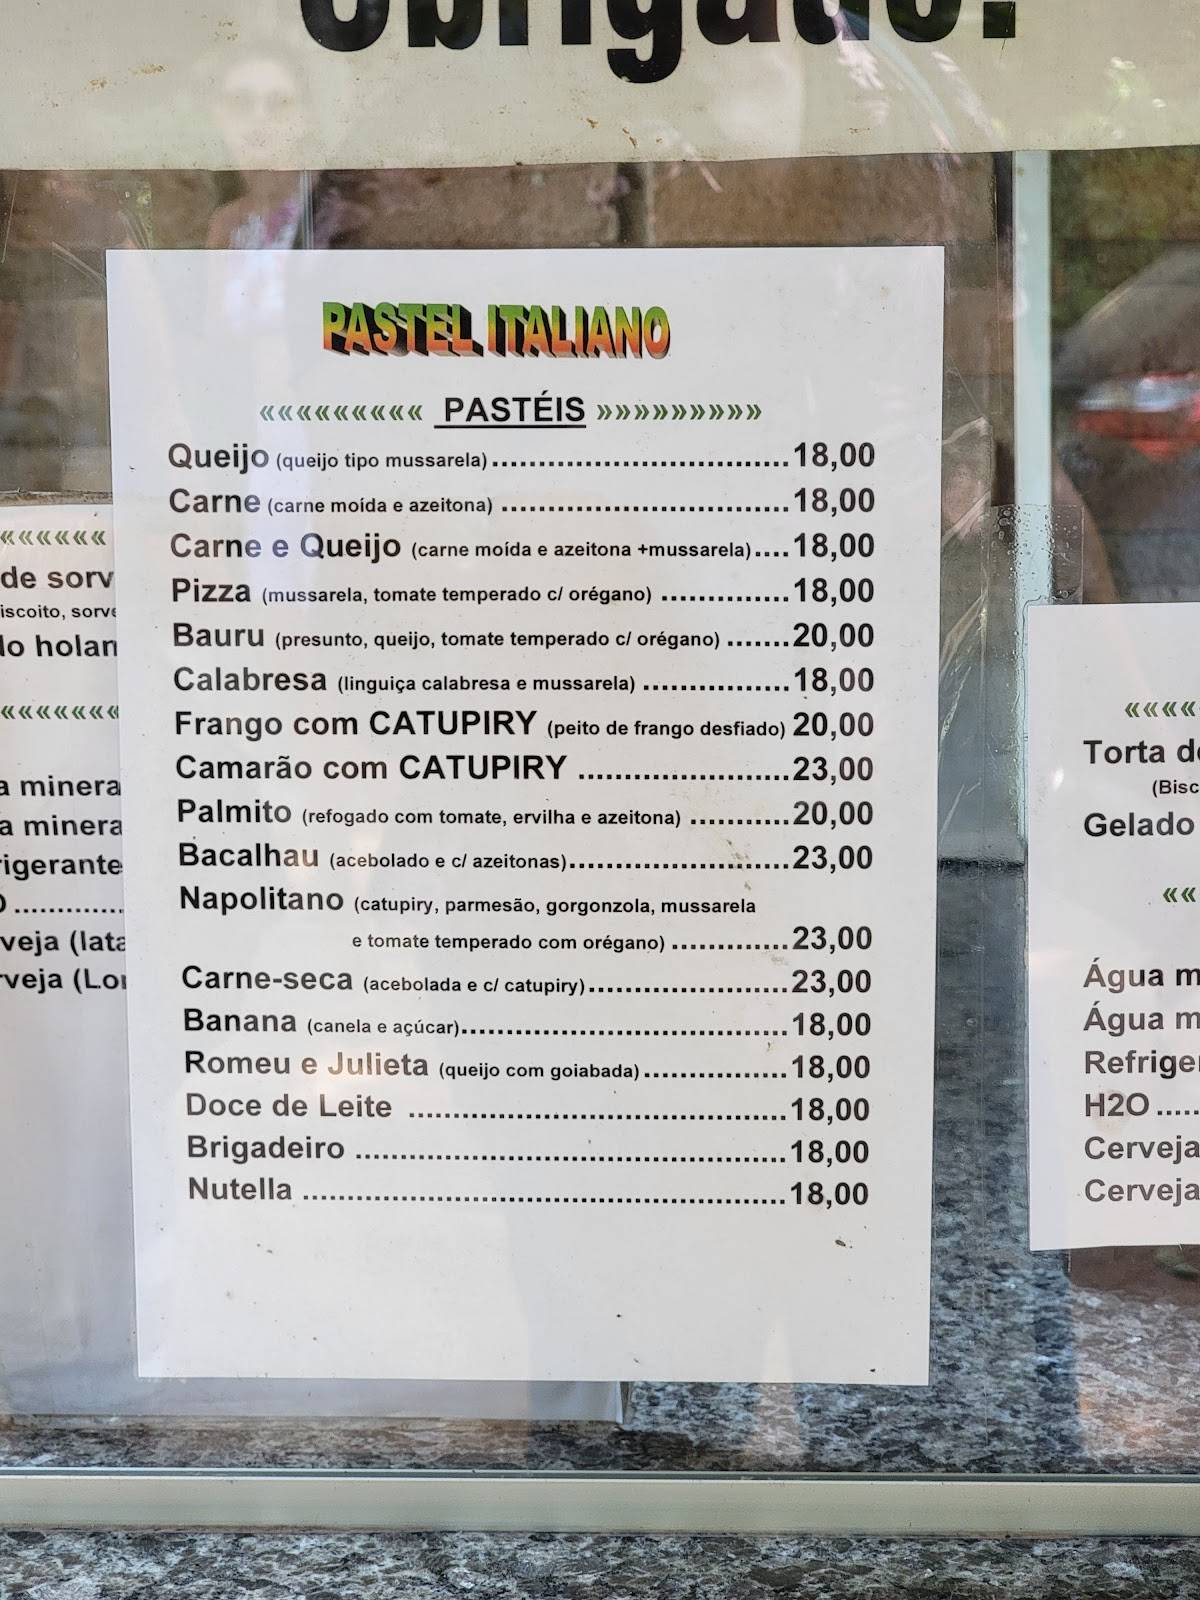 Obrigado!
PASTEL ITALIANO
««««««««« PASTÉIS »»»»»»»»»
Queijo (queijo tipo mussarela)................................18,00
Carne (carne moída e azeitona) ...............................18,00
Carne e Queijo (carne moída e azeitona +mussarela)....18,00
Pizza (mussarela, tomate temperado c/ orégano) ..............18,00
Bauru (presunto, queijo, tomate temperado c/ orégano) .......20,00
Calabresa (linguiça calabresa e mussarela) ................18,00
Frango com CATUPIRY (peito de frango desfiado) 20,00
Camarão com CATUPIRY .......................23,00
Palmito (refogado com tomate, ervilha e azeitona) ...........20,00
Bacalhau (acebolado e c/ azeitonas)........................23,00
Napolitano (catupiry, parmesão, gorgonzola, mussarela
e tomate temperado com orégano) .............23,00
Carne-seca (acebolada e c/ catupiry)......................23,00
Banana (canela e açúcar)....................................18,00
Romeu e Julieta (queijo com goiabada)................18,00
Doce de Leite ..........................................18,00
Brigadeiro ................................................18,00
Nutella ......................................................18,00
««««««
de sorv
iscoito, sorve
do holan
«««««««
a minera
a minera
rigerante
O.............
veja (lata
rveja (Lon
««««
Torta de
(Bisc
Gelado
««
Água m
Água m
Refriger
H2O .....
Cerveja
Cerveja